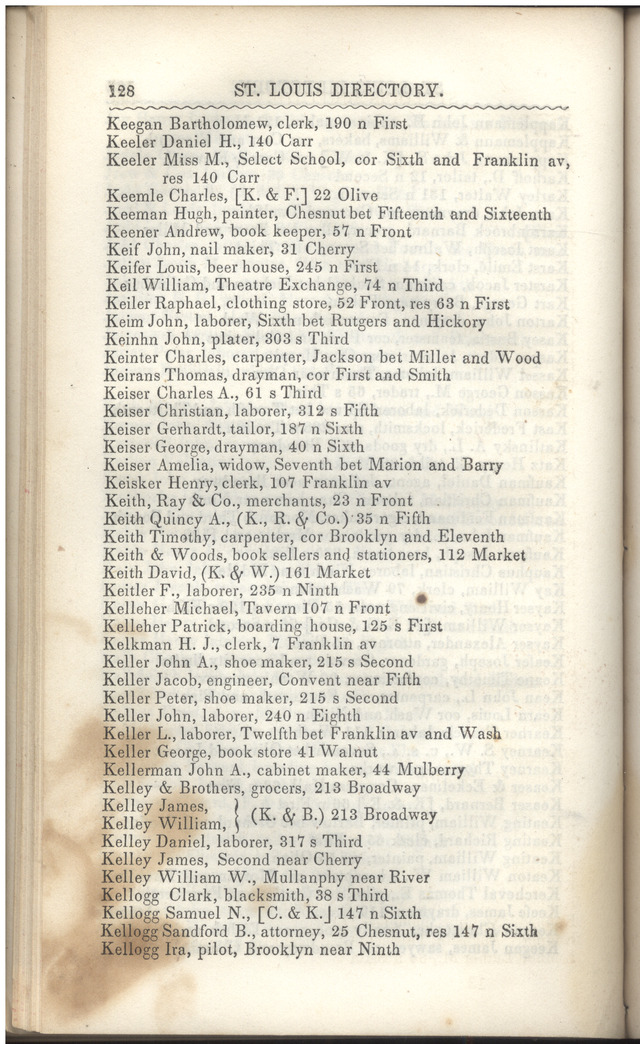 128 ST. LOUIS DIRECTORY.
Keegan Bartholomew, clerk, 190 n First
Keeler Daniel H., 140 Carr
Keeler Miss M., Select School, cor Sixth and Franklin av,
res 140 Carr
Keemle Charles, [K. & F.] 22 Olive
Keeman Hugh, painter, Chesnut bet Fifteenth and Sixteenth
Keener Andrew, book keeper, 57 n Front
Keif John, nail maker, 31 Cherry
Keifer Louis, beer house, 245 n First
Keil William, Theatre Exchange, 74 n Third
Keiler Raphael, clothing store, 52 Front, res 63 n First
Keim John, laborer, Sixth bet Rutgers and Hickory
Keinhn John, plater, 303 s Third
Keinter Charles, carpenter, Jackson bet Miller and Wood
Keirans Thomas, drayman, cor First and Smith
Keiser Charles A., 61 s Third
Keiser Christian, laborer, 312 s Fifth
Keiser Gerhardt, tailor, 187 n Sixth
Keiser George, drayman, 40 n Sixth
Keiser Amelia, widow, Seventh bet Marion and Barry
Keisker Henry, clerk, 107 Franklin av
Keith, Ray & Co., merchants, 23 n Front
Keith Quincy A., (K., R. & Co.) 35 n Fifth
Keith Timothy, carpenter, cor Brooklyn and Eleventh
Keith & Woods, book sellers and stationers, 112 Market
Keith David, (K. & W.) 161 Market
Keitler F., laborer, 235 n Ninth
Kelleher Michael, Tavern 107 n Front
Kelleher Patrick, boarding house, 125 s First
Kelkman H. J., clerk, 7 Franklin av
Keller John A., shoe maker, 215 s Second
Keller Jacob, engineer, Convent near Fifth
Keller Peter, shoe maker, 215 s Second
Keller John, laborer, 240 n Eighth
Keller L., laborer, Twelfth bet Franklin av and Wash
Keller George, book store 41 Walnut
Kellerman John A., cabinet maker, 44 Mulberry
Kelley & Brothers, grocers, 213 Broadway
Kelley James,
Kelley William, } (K. & B.) 213 Broadway
Kelley Daniel, laborer, 317 s Third
Kelley James, Second near Cherry
Kelley William W., Mullanphy near River
Kellogg Clark, blacksmith, 38 s Third
Kellogg Samuel N., [C. & K.] 147 n Sixth
Kellogg Sandford B., attorney, 25 Chesnut, res 147 n Sixth
Kellogg Ira, pilot, Brooklyn near Ninth